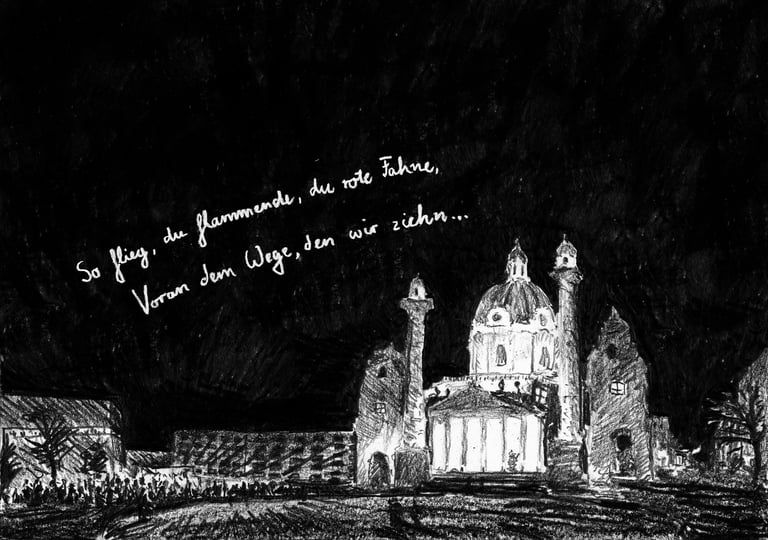 So flieg, du flammende, du rote Fahne,
Voran dem Wege, den wir ziehn...